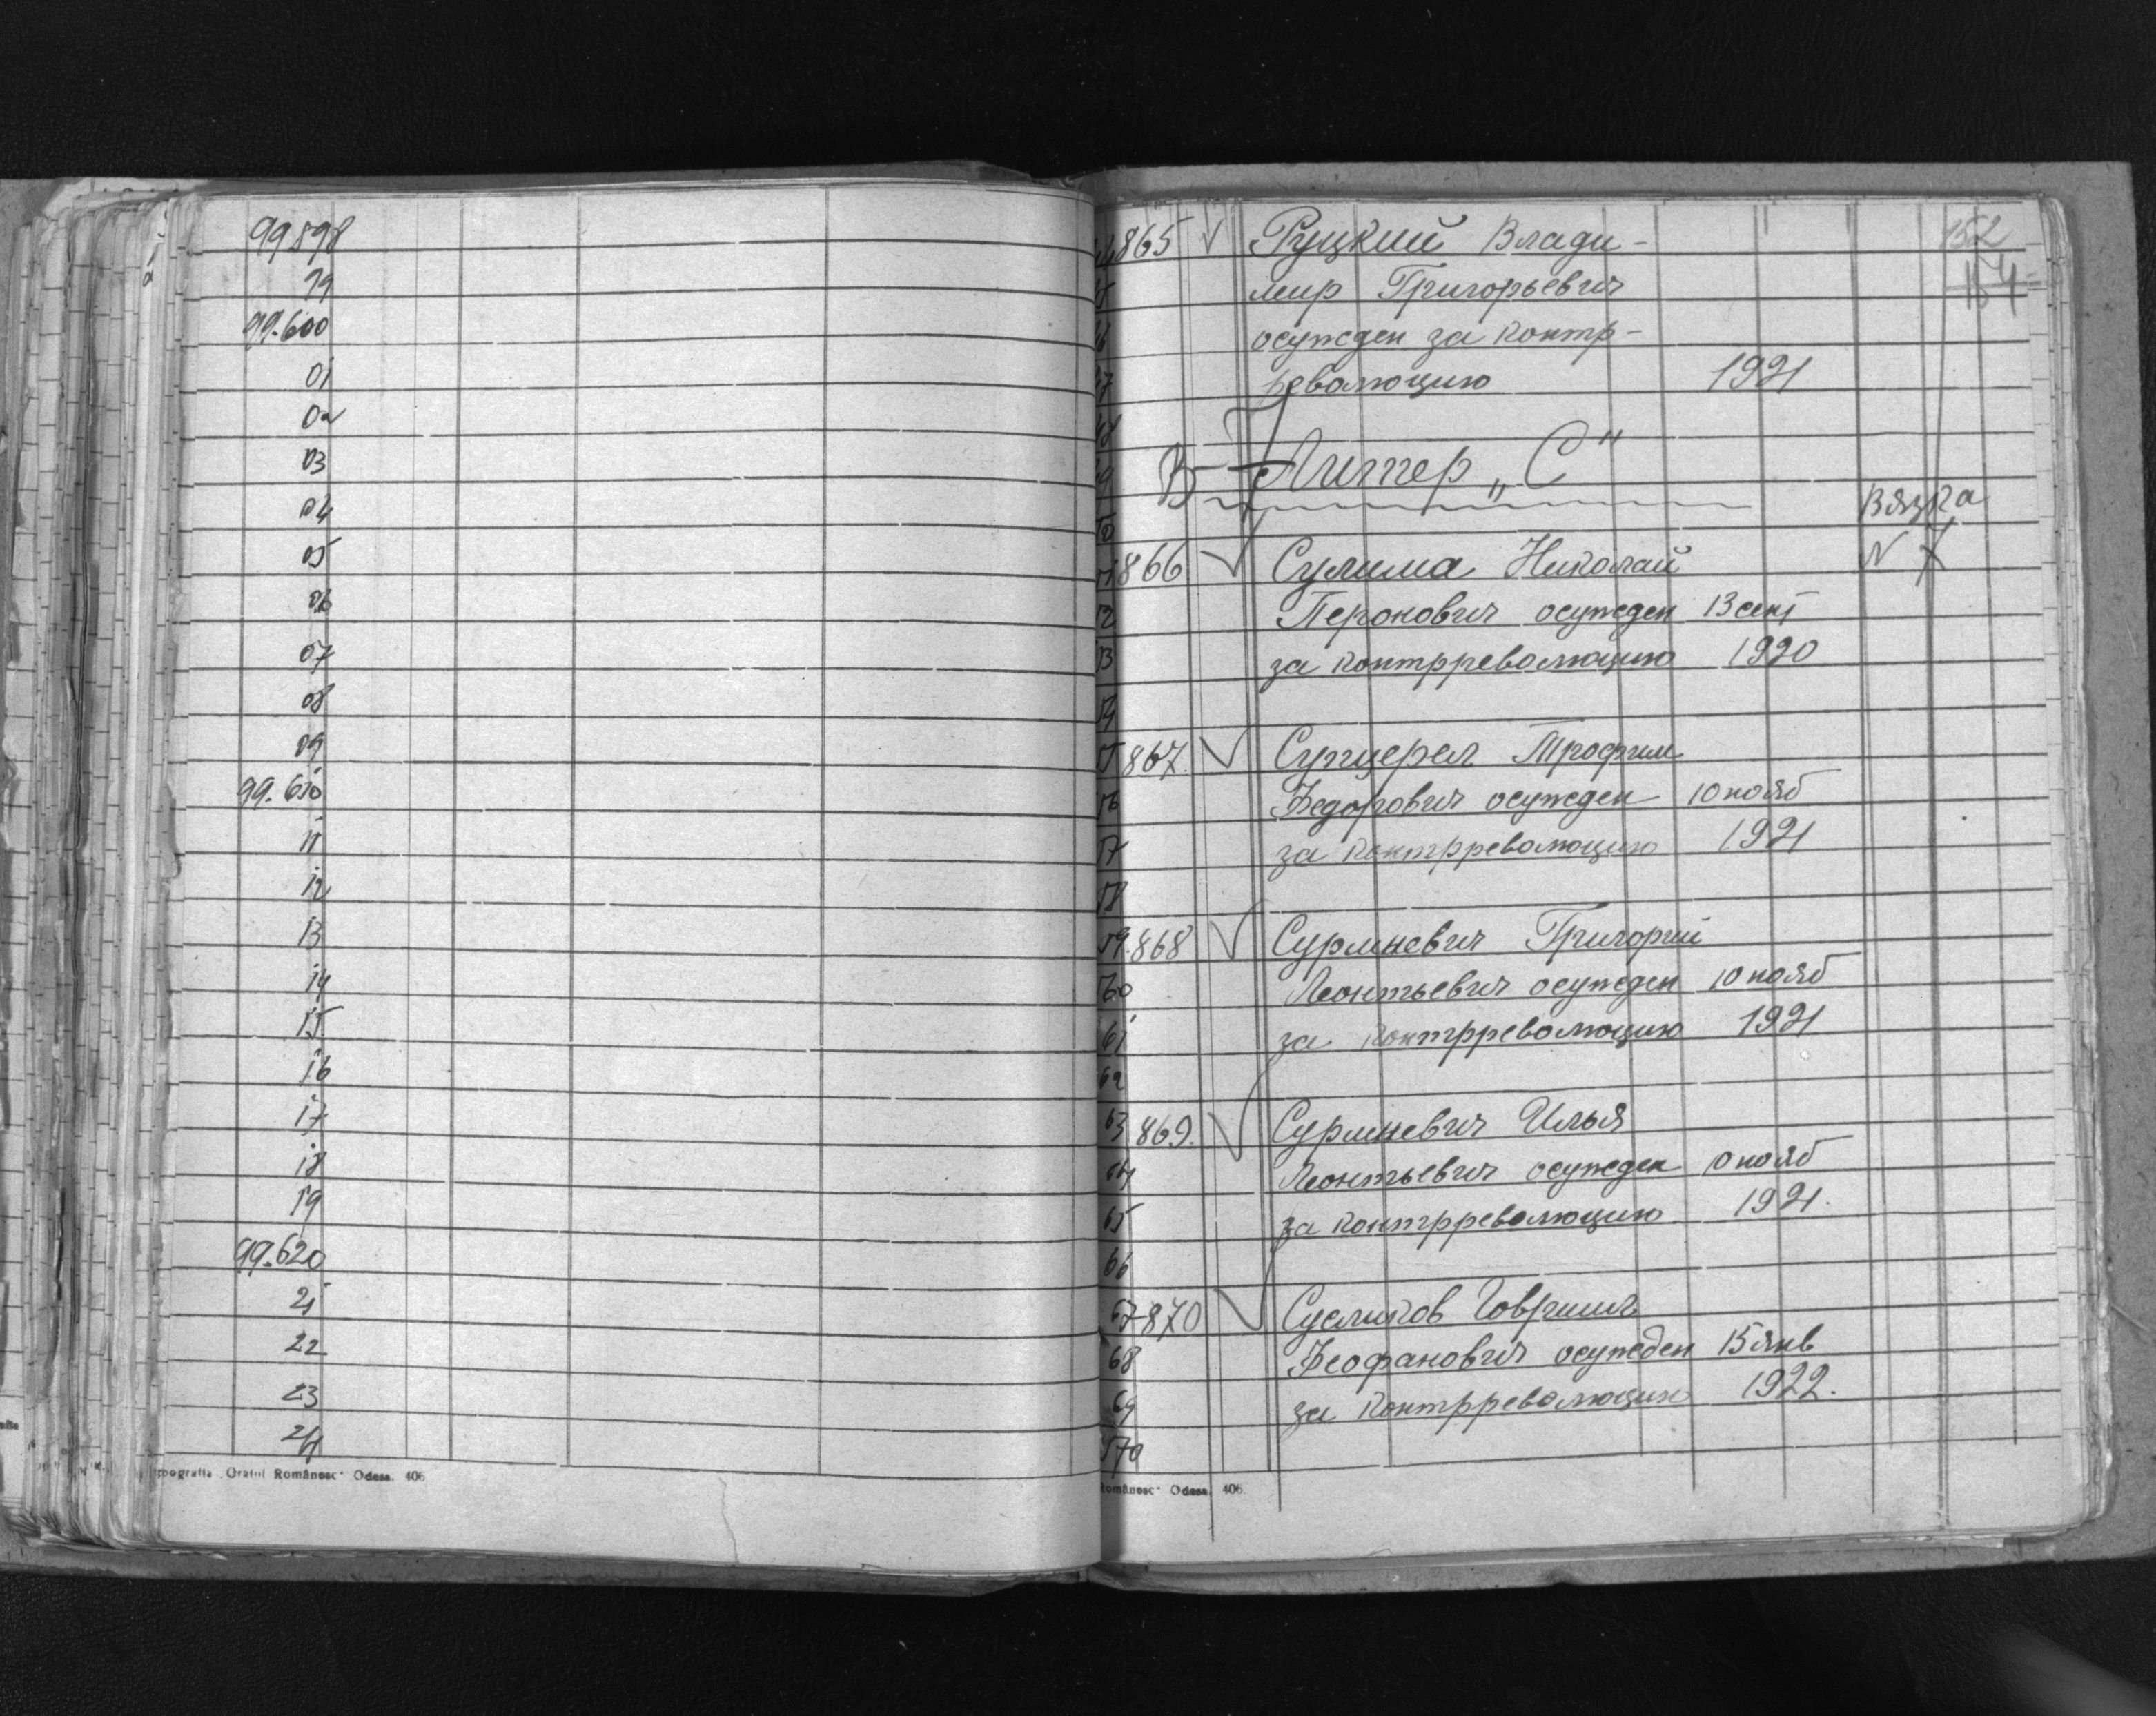 99598
99
99.600
01
02
03
04
05
06
07
08
09
99.610
11
12
13
14
15
16
17
18
19
99.620
21
22
23
24
Oraful Românesc" Odesa. 406
152
154
865 Руцкий Влади-
мир Григорьевич
осужден за контр-
революцию 1921
Литер „С"
Вязка
N 7
866 Сулима Николай
осужден 13 сент
за контрреволюцию 1920
867. Трофим
Федорович осужден 10 нояб
за контрреволюцию 1921
868 Сурменевич Григорий
Леонтьевич осужден 10 нояб
за контрреволюцию 1921
869. Сурменевич Илья
Леонтьевич осужден 10 нояб
за контрреволюцию 1921.
870 Сусликов
Феофанович осужден 15 янв
за контрреволюцию 1922.
Românesc" Odesa. 406